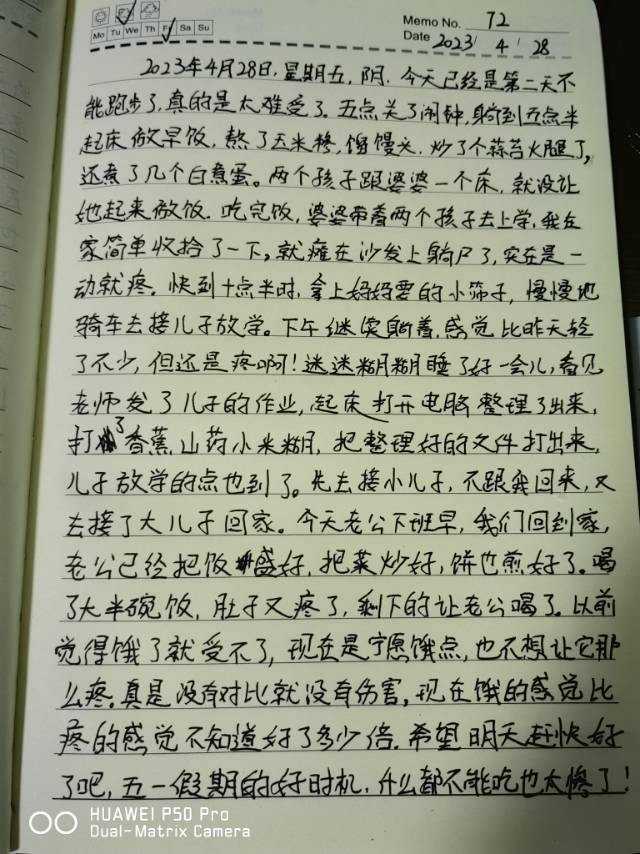 Mo Tu We Th Fr Sa Su
Memo No. 72
Date 2023 / 4 / 28
2023年4月28日,星期五,阴.今天已经是第二天不
能跑步了,真的是太难受了.五点关了闹钟,躺到五点半
起床做早饭,熬了玉米糁,馏馒头.炒了个蒜苔火腿丁,
还煮了几个白煮蛋。两个孩子跟婆婆一个床,就没让
她起来做饭.吃完饭,婆婆带着两个孩子去上学,我在
家简单收拾了一下,就瘫在沙发上躺尸了,实在是一
动就疼.快到十点半时,拿上妈妈要的小筛子,慢慢地
骑车去接儿子放学。下午继续躺着,感觉比昨天轻
了不少,但还是疼啊!迷迷糊糊睡了好一会儿,看见
老师发了儿子的作业,起床打开电脑整理了出来,
打了香蕉山药小米糊,把整理好的文件打出来,
儿子放学的点也到了。先去接小儿子,不跟我回来,又
去接了大儿子回家。今天老公下班早,我们回到家,
老公已经把饭盛好,把菜炒好,饼也煎好了。喝
了大半碗饭,肚子又疼了,剩下的让老公喝了.以前
觉得饿了就受不了,现在是宁愿饿点,也不想让它那
么疼.真是没有对比就没有伤害,现在饿的感觉比
疼的感觉不知道好了多少倍.希望明天赶快好
了吧,五一假期的好时机,什么都不能吃也太惨了!
HUAWEI P50 Pro
Dual-Matrix Camera